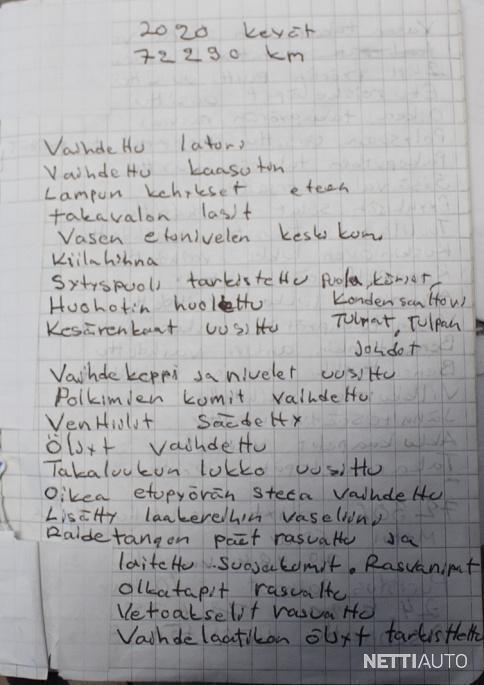 2020 kevät
72290 km
Vaihdettu laturi
Vaihdettu kaasutin
Lampun kehykset eteen
takavalon lasit
Vasen etonivelen keskikumi
Kiilahihna
Sytyspuoli tarkistettu puola, kärjet,
Huohotin huolettu kondensaattori
Kesärenkaat uusittu Tulpat, Tulpan
johdot
Vaihdekeppi ja nivelet uusittu
Polkimien kumit vaihdettu
Venttiilit säädetty
Öljyt vaihdettu
Takaluukun lukko uusittu
Oikea etupyörän steea vaihdettu
Lisätty laakereihin vaseliini
Raidetangon päät rasvattu ja
laitettu suojakumit. Rasvanipat
Olkatapit rasvattu
Vetoakselit rasvattu
Vaihdelaatikon öljyt tarkistettu
NETTIAUTO